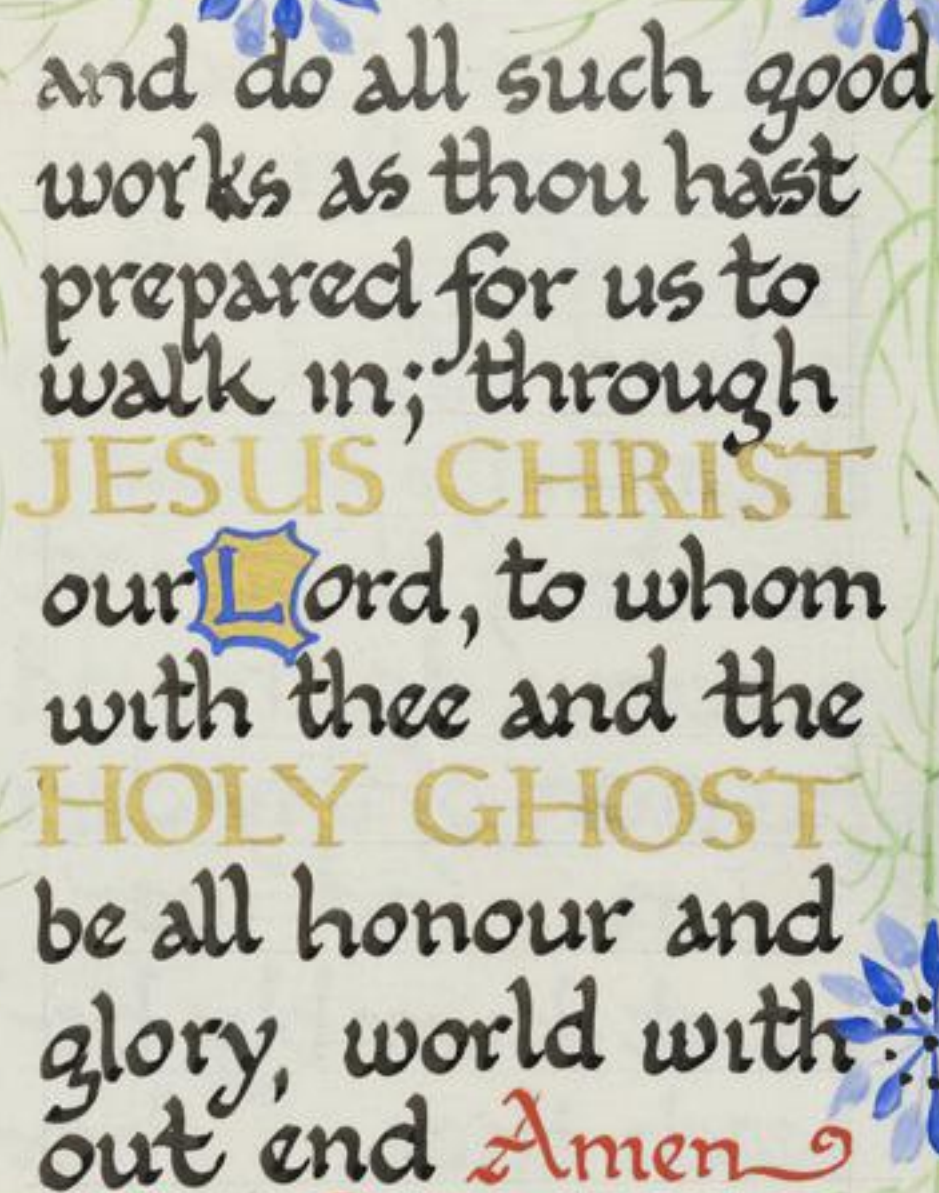 and do all such good
works as thou hast
prepared for us to
walk in; through
JESUS CHRIST
our Lord, to whom
with thee and the
HOLY GHOST
be all honour and
glory, world with
out end Amen